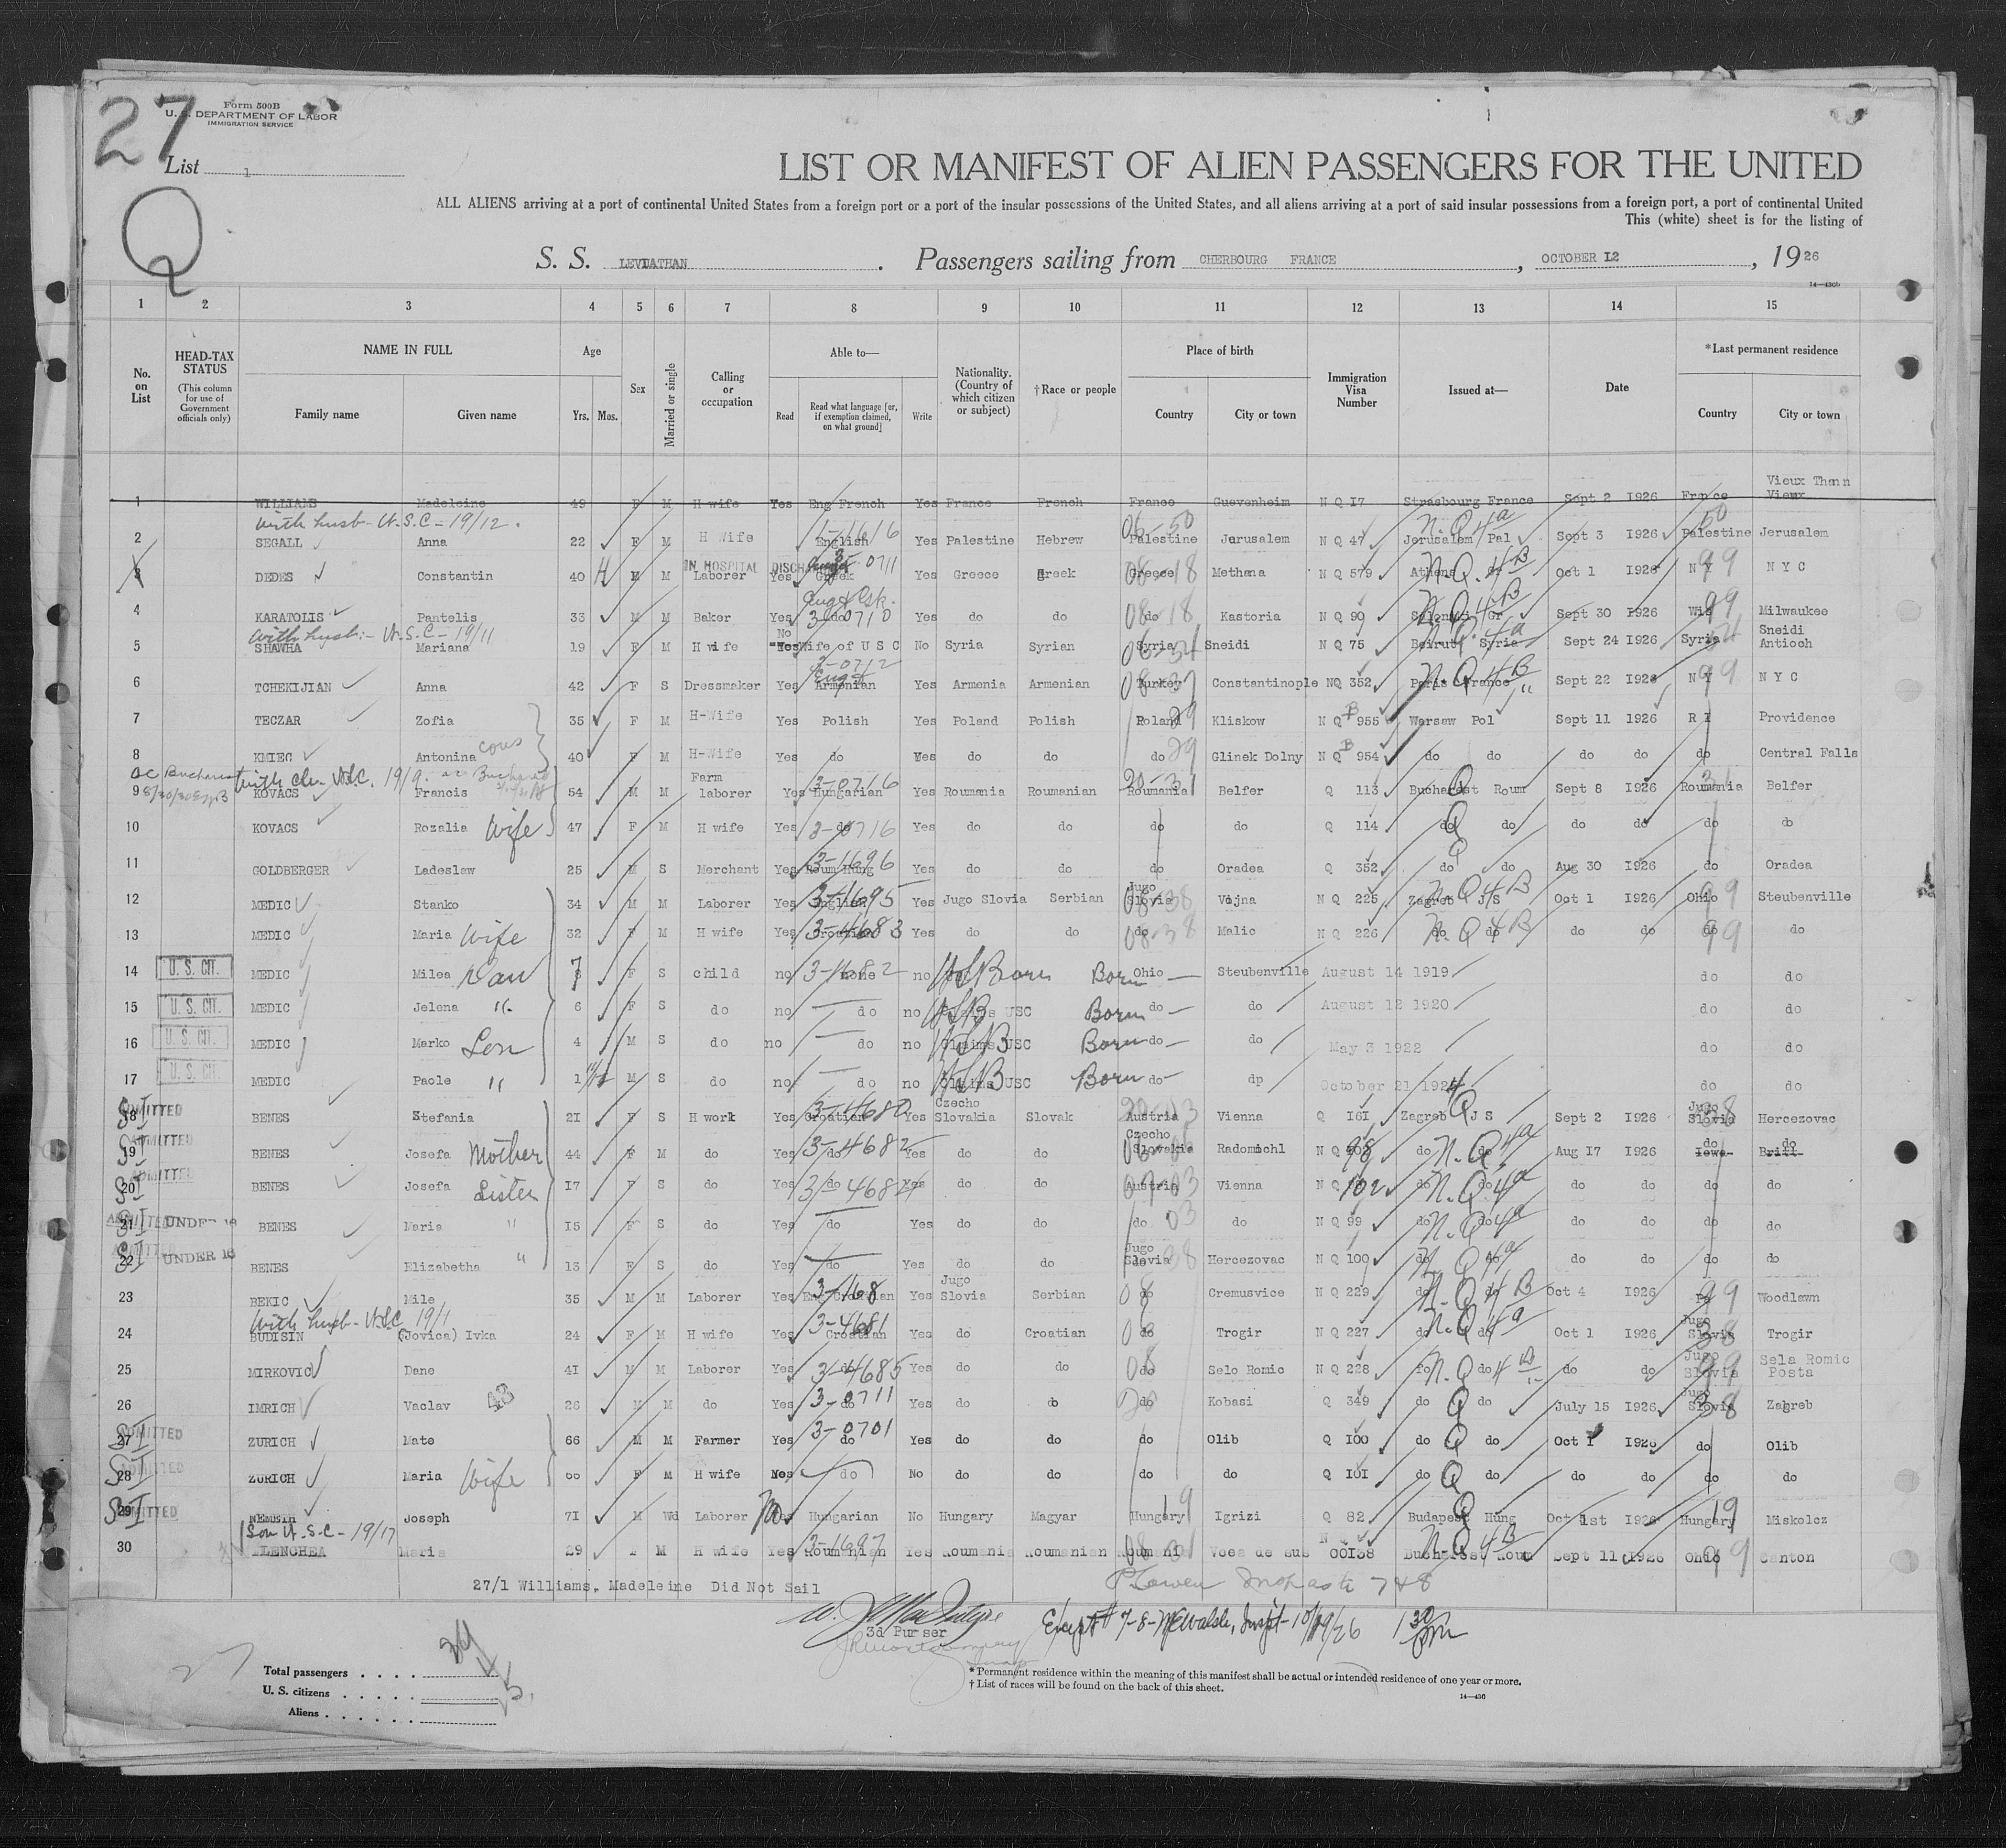 27
Form 500B
U. S. DEPARTMENT OF LABOR
IMMIGRATION SERVICE
List 1
Q
LIST OR MANIFEST OF ALIEN PASSENGERS FOR THE UNITED
ALL ALIENS arriving at a port of continental United States from a foreign port or a port of the insular possessions of the United States, and all aliens arriving at a port of said insular possessions from a foreign port, a port of continental United
This (white) sheet is for the listing of
S. S. LEVIATHAN . Passengers sailing from CHERBOURG FRANCE , OCTOBER 12 , 1926
14—430b
1 2 3 4 5 6 7 8 9 10 11 12 13 14 15
No. on List
HEAD-TAX STATUS (This column for use of Government officials only)
NAME IN FULL Family name Given name
Age Yrs. Mos.
Sex
Married or single
Calling or occupation
Able to— Read Read what language [or, if exemption claimed, on what ground] Write
Nationality. (Country of which citizen or subject)
†Race or people
Place of birth Country City or town
Immigration Visa Number
Issued at—
Date
*Last permanent residence Country City or town
1 WILLIAMS Madeleine 49 F M H wife Yes Eng French Yes France French France Guevenheim N Q 17 Strasbourg France Sept 2 1926 France Vieux Thann Vieux
With husb - U.S.C - 19/12.
2 SEGALL Anna 22 F M H Wife English Yes Palestine Hebrew Palestine Jerusalem N Q 47 Jerusalem Pal Sept 3 1926 Palestine Jerusalem
IN HOSPITAL DISCHARGED
3 DEDES Constantin 40 M M Laborer Yes Greek Yes Greece Greek Greece Methana N Q 579 Athens Oct 1 1926 N Y N Y C
4 KARATOLIS Pantelis 33 M M Baker Yes do 3-0710 Yes do do do Kastoria N Q 90 Saloniki Gr Sept 30 1926 Wis Milwaukee
With husb - U.S.C - 19/11
5 SHAWHA Mariana 19 F M H wife No Wife of U S C No Syria Syrian Syria Sneidi N Q 75 Beirut Syria Sept 24 1926 Syria Sneidi Antioch
6 TCHEKIJIAN Anna 42 F S Dressmaker Yes Armenian Yes Armenia Armenian Turkey Constantinople NQ 352 Paris France Sept 22 1926 N Y N Y C
7 TECZAR Zofia 35 F M H-Wife Yes Polish Yes Poland Polish Poland Kliskow N Q 955 Warsaw Pol Sept 11 1926 R I Providence
8 KMIEC Antonina cous 40 F M H-Wife Yes do Yes do do do Glinek Dolny N Q 954 do do do do do Central Falls
9 KOVACS Francis 54 M M Farm laborer Yes Hungarian 3-0716 Yes Roumania Roumanian Roumania Belfer Q 113 Bucharest Roum Sept 8 1926 Roumania Belfer
10 KOVACS Rozalia Wife 47 F M H wife Yes do 3-0716 Yes do do do do Q 114 do do do do do do
11 GOLDBERGER Ladeslaw 25 M S Merchant Yes Roum Hung 3-1696 Yes do do do Oradea Q 352 do do Aug 30 1926 do Oradea
12 MEDIC Stanko 34 M M Laborer Yes English Yes Jugo Slovia Serbian Jugo Slovia Vojna N Q 225 Zagreb J S Oct 1 1926 Ohio Steubenville
13 MEDIC Maria Wife 32 F M H wife Yes Croatian 3-4683 Yes do do do Malic N Q 226 do do do do do do
14 U. S. CIT. MEDIC Milea Dau 7 F S child no none no US Born Born Ohio Steubenville August 14 1919 do do
15 U. S. CIT. MEDIC Jelena " 6 F S do no do no Claims USC Born do do August 12 1920 do do
16 U. S. CIT. MEDIC Marko Son 4 M S do no do no Claims USC Born do do May 3 1922 do do
17 U. S. CIT. MEDIC Paole " 1 M S do no do no Claims USC Born do dp October 21 1924 do do
18 SI ADMITTED BENES Stefania 21 F S H work Yes Croatian 3-4680 Yes Czecho Slovakia Slovak Austria Vienna Q 161 Zagreb J S Sept 2 1926 Jugo Slovia Hercezovac
19 SI ADMITTED BENES Josefa Mother 44 F M do Yes do 3-4682 Yes do do Czecho Slovakia Radomichl N Q 98 do do Aug 17 1926 do Iowa do Briff
20 SI ADMITTED BENES Josefa Sister 17 F S do Yes do Yes do do Austria Vienna N Q 102 do do do do do do
21 SI ADMITTED UNDER 16 BENES Maria " 15 F S do Yes do Yes do do do do N Q 99 do do do do do do
22 SI ADMITTED UNDER 16 BENES Elizabetha " 13 F S do Yes do Yes do do Jugo Slovia Hercezovac N Q 100 do do do do do do
23 BEKIC Mile 35 M M Laborer Yes Eng Croatian Yes Jugo Slovia Serbian do Cremusvice N Q 229 do do Oct 4 1926 Pa Woodlawn
With husb - U.S.C 19/1
24 BUDISIN (Jovica) Ivka 24 F M H wife Yes Croatian 3-4681 Yes do Croatian do Trogir N Q 227 do do Oct 1 1926 Jugo Slovia Trogir
25 MIRKOVIC Dane 41 M M Laborer Yes do 3-4685 Yes do do do Selo Romic N Q 228 do do do do Jugo Slovia Sela Romic Posta
26 IMRICH Vaclav 26 M M do Yes do 3-0711 Yes do do do Kobasi Q 349 do do July 15 1926 Jugo Slovia Zagreb
27 SI ADMITTED ZURICH Mate 66 M M Farmer Yes do 3-0701 Yes do do do Olib Q 100 do do Oct 1 1926 do Olib
28 SI ADMITTED ZURICH Maria Wife F M H wife do No do do do do Q 101 do do do do do do
29 SI ADMITTED Joseph 71 M Wd Laborer No Hungarian No Hungary Magyar Hungary Igrizi Q 82 Budapest Hung Oct 1st 1926 Hungary Miskolcz
Son U.S.C - 19/17
30 Maria 29 F M H wife Yes Roumanian 3-1697 Yes Roumania Roumanian Roumania 00138 Bucharest Roum Sept 11 1926 Ohio Canton
27/1 Williams, Madeleine Did Not Sail
3d Purser
Except # 7-8- 10/19/26 1 30 pm
Total passengers . . . .
U. S. citizens . . . . .
Aliens . . . . . .
* Permanent residence within the meaning of this manifest shall be actual or intended residence of one year or more.
† List of races will be found on the back of this sheet.
14—436